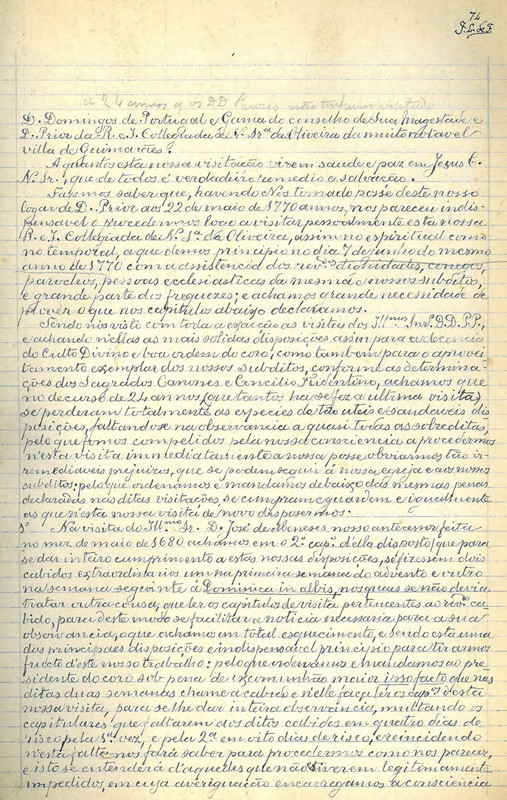 74
ha 24 annos q. os DD Priores não tinham visitado
D. Domingos de Portugal e Gama do conselho de Sua Magestade e
D. Prior da R. e I. Collegiada de N. Srª da Oliveira da muito notavel
villa de Guimarães?
A quantos esta nossa visitação virem saude e paz em Jesus C.
N. Sr., que de todos é verdadeiro remedio e salvação.
Fazemos saber que, havendo Nós tomado posse deste nosso
logar de D. Prior aos 22 de maio de 1770 annos, nos pareceu indis-
pensavel e procedemos logo a visitar pessoalmente esta nossa
R. e I. Collegiada de N. Sª da Oliveira, assim no espiritual como
no temporal, a que demos principio no dia 7 de junho do mesmo
anno de 1770 com a assistencia dos revdos dignidades, conegos,
parochos, pessoas ecclesiasticas da mesma e nossos subditos,
e grande parte dos freguezes; e achamos grande necessidade de
prover o que nos capitulos abaixo declaramos.
Sendo nós visto com toda a exacção as visitas dos Illmos Snrs. DD. PP.,
e achando n'ellas as mais solidas disposições assim para a decencia
do Culto Divino e boa ordem do coro, como tambem para o aprovei-
tamento exemplar dos nossos subditos, conforme as determina-
ções dos Sagrados Canones e Concilio Tridentino, achamos que
no decurso de 24 annos (que tantos ha se fez a ultima visita)
se perderam totalmente as especies de tão uteis e saudaveis dis-
posições, faltando-se na observancia a quasi todas as sobreditas,
pelo que fomos compelidos pela nossa consciencia a procedermos
n'esta visita immediatamente a nossa posse obviarmos tão ir-
remediaveis prejuizos, que se podem seguir á nossa egreja e aos nossos
subditos: pelo que ordenamos e mandamos debaixo das mesmas penas
declaradas nas ditas visitações, se cumpram e guardem e igualmente
as que n'esta nossa visita de novo dispozermos.
1º Na visita do Illmo Sr. D. José de Menezes nosso antecessor feita
no mez de maio de 1680 achamos em o 2º capº d'ella disposto que para
se dar inteiro cumprimento a estas nossas disposições, se fizessem dois
cabidos extraordinarios um na primeira semana do advento e outro
na semana seguinte á Dominica in albis, nos quaes se não deveria
tratar outra cousa, que ler os capitulos de visita pertencentes ao rdº ca-
bido, para d'este modo se facilitar a noticia necessaria para a sua
observancia, o que achamos em total esquecimento, e sendo esta uma
das principaes disposições e indispensavel principio para tirarmos
fructo d'este nosso trabalho: pelo que ordenamos e mandamos ao pre-
sidente do coro sob pena de excomunhão maior ipso facto que nas
ditas duas semanas chame a cabido e n'elle faça ler os capºs d'esta
nossa visita, para se lhe dar inteira observancia, multando os
capitulares que faltarem aos ditos cabidos em quatro dias de
risco pela 1ª vez, e pela 2ª em oito dias de risco, e reincidindo
n'esta falta nos fará saber para procedermos como nos parecer,
e isto se entenderá d'aqueles que não estiverem legitimamente
impedidos, em cuja averiguação encarregamos a consciencia